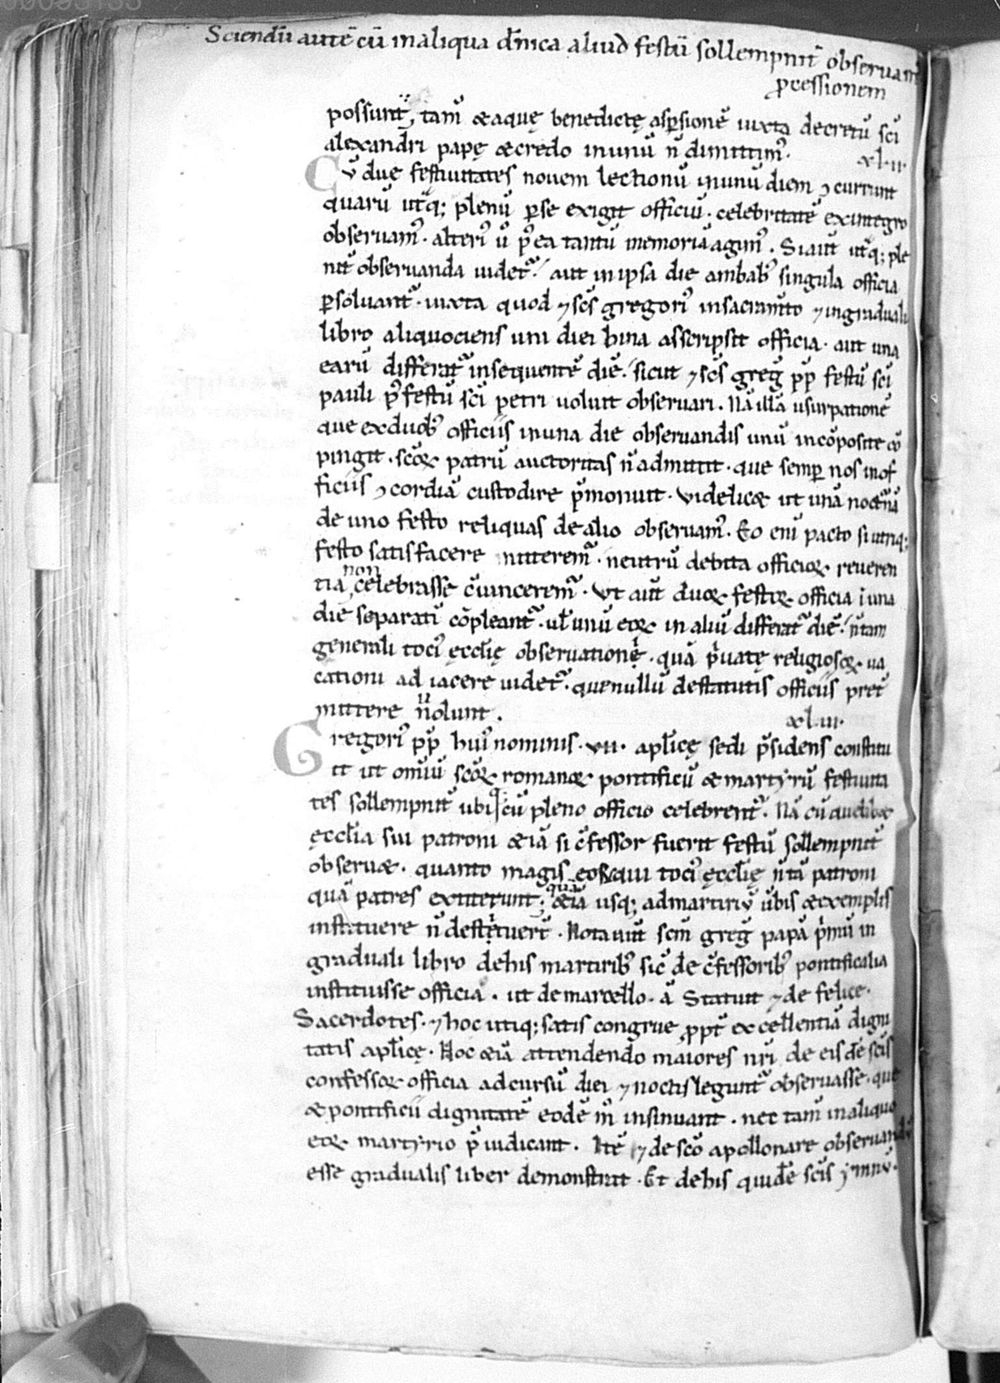 Sciendũ autẽ cũ in aliqua dñica aliud festũ sollempnit̃ obseruam̃
p̱cessionem
possunt, tam̃ & aquę benedictę asp̱sionẽ iuxta decretũ sc̃i
alexandri papę & credo in unũ ñ dimittim᷒.
xl.ii.
Cũ duę festiuitates nouem lectionũ in unũ diem ɔcurrunt
quarũ ut̃q; plenũ p̱ se exigit officiũ. celebritatẽ ex integro
obseruam᷒. alteri᷒ ũ p̱ ea tantũ memoriã agim᷒. Si aut̃ ut̃q; ple
nit̃ obseruanda uidet̃. aut in ipsa die ambab᷒ singula officia
p̱soluant̃. iuxta quod ⁊ sc̃s gregori᷒ in sacram̃to ⁊ in graduali
libro aliquociens uni diei bina asscripsit officia. aut una
earũ differat̃ in sequentẽ diẽ. sicut ⁊ sc̃s greg̃ pp̃ festũ sc̃i
pauli p᷒ festũ sc̃i petri uoluit obseruari. Nã illã usurpationẽ
que ex duob᷒ officiis in una die obseruandis unũ incõposite cõ
pingit. sc̃oꝝ patrũ auctoritas ñ admittit. que semp̱ nos in of
ficiis ɔcordiã custodire p̃monuit. uidelic& ut unã noct̃nã
de uno festo reliquas de alio obseruam᷒. Eo eni pacto si utriq;
festo satisfacere niterem̃. neutrũ debita officioꝝ reueren
tia non celebrasse c̃uincerem̃. Vt aut̃ duoꝝ festoꝝ officia ĩ una
die separatĩ cõpleant̃. ul̃ unũ eoꝝ in aliũ differat̃ diẽ. ñ tam
generali toci᷒ ęcclię obseruationẹ̃. quã p̃uatę religiosoꝝ. ua
cationi adiacere uidet̃. que nullũ de statutis officiis pret̃
mittere ñ nolunt.
xl.iii.
Gregori᷒ pp̃ hui᷒ nominis. vii. apl̃icę sedi p̃sidens constitu
it ut om̃iũ sc̃oꝝ romanoꝝ pontificũ & martyrũ festiuita
tes sollempnit̃ ubiq; cũ pleno officio celebrent̃. Nã cũ quelib&
ęccl̃ia sui patroni &iã si c̃fessor fuerit festũ sollempnit̃
obseru&. quanto magis eoꝝ qui toci᷒ ęccl̃ię ñ tã patroni
quã patres extiterunt. quã &iã usq; ad martiriũ ũbis & exemplis
instituere ñ destiterũt. Notauit sc̃m greg̃ papã p̃mũ in
graduali libro de his martirib᷒ sic̃ de c̃fessorib᷒ pontificalia
instituisse officia. ut de marcello. ã Statuit ⁊ de felice.
Sacerdotes. ⁊ hoc utiq; satis congrue p̱pt̃ excellentiã digni
tatis apl̃icę. Hoc &iã attendendo maiores nr̃i de eis dẽ sc̃is
confessoꝝ officia ad cursũ diei ⁊ noctis legunt̃ obseruasse. que
& pontificũ dignitatẽ eodẽ m̃ insinuant. nec tam̃ in aliquo
eoꝝ martyrio p̃iudicant. Itẽ ⁊ de sc̃o apollonare obseruandũ
esse gradualis liber demonstrat. Et de his quidẽ sc̃is ymnũ.